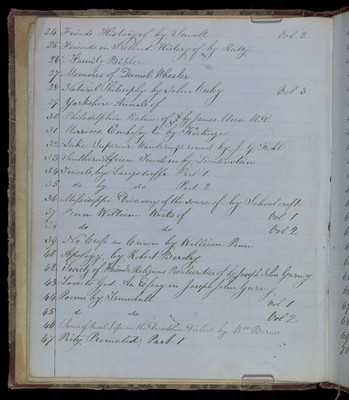 24 Friends History of by Sewell Vol 2
25 Friends in Ireland History of by Rutty
26 Family Bible
27 Memoirs of Daniel Wheeler
28 Natural Philosophy by John Wesley Vol 3
29 Yorkshire Annals of
30 Philadelphia Picture of by James Mease M.D.
31 Morocco Embassy to by Keatinge
32 Lake Superior Wanderings round by J. G. Kohl
33 Southern Africa Travels in by Lichtenstein
34 Travels, by Langsdorff Part 1
35 do by do Part 2
36 Mississippi Discovery of the source of by Schoolcraft
37 Penn William Works of Vol 1
38 do do Vol 2
39 No Cross no Crown by William Penn
40 Apology, by Robert Barclay
42 Society of Friends Religious Peculiarities of by Joseph John Gurney
43 Love to God An Essay on Joseph John Gurney
44 Poems by Trumbull Vol 1
45 do do Vol 2
46 Scenes of Real Life in the by Wm
47 Piety Promoted, Part 1